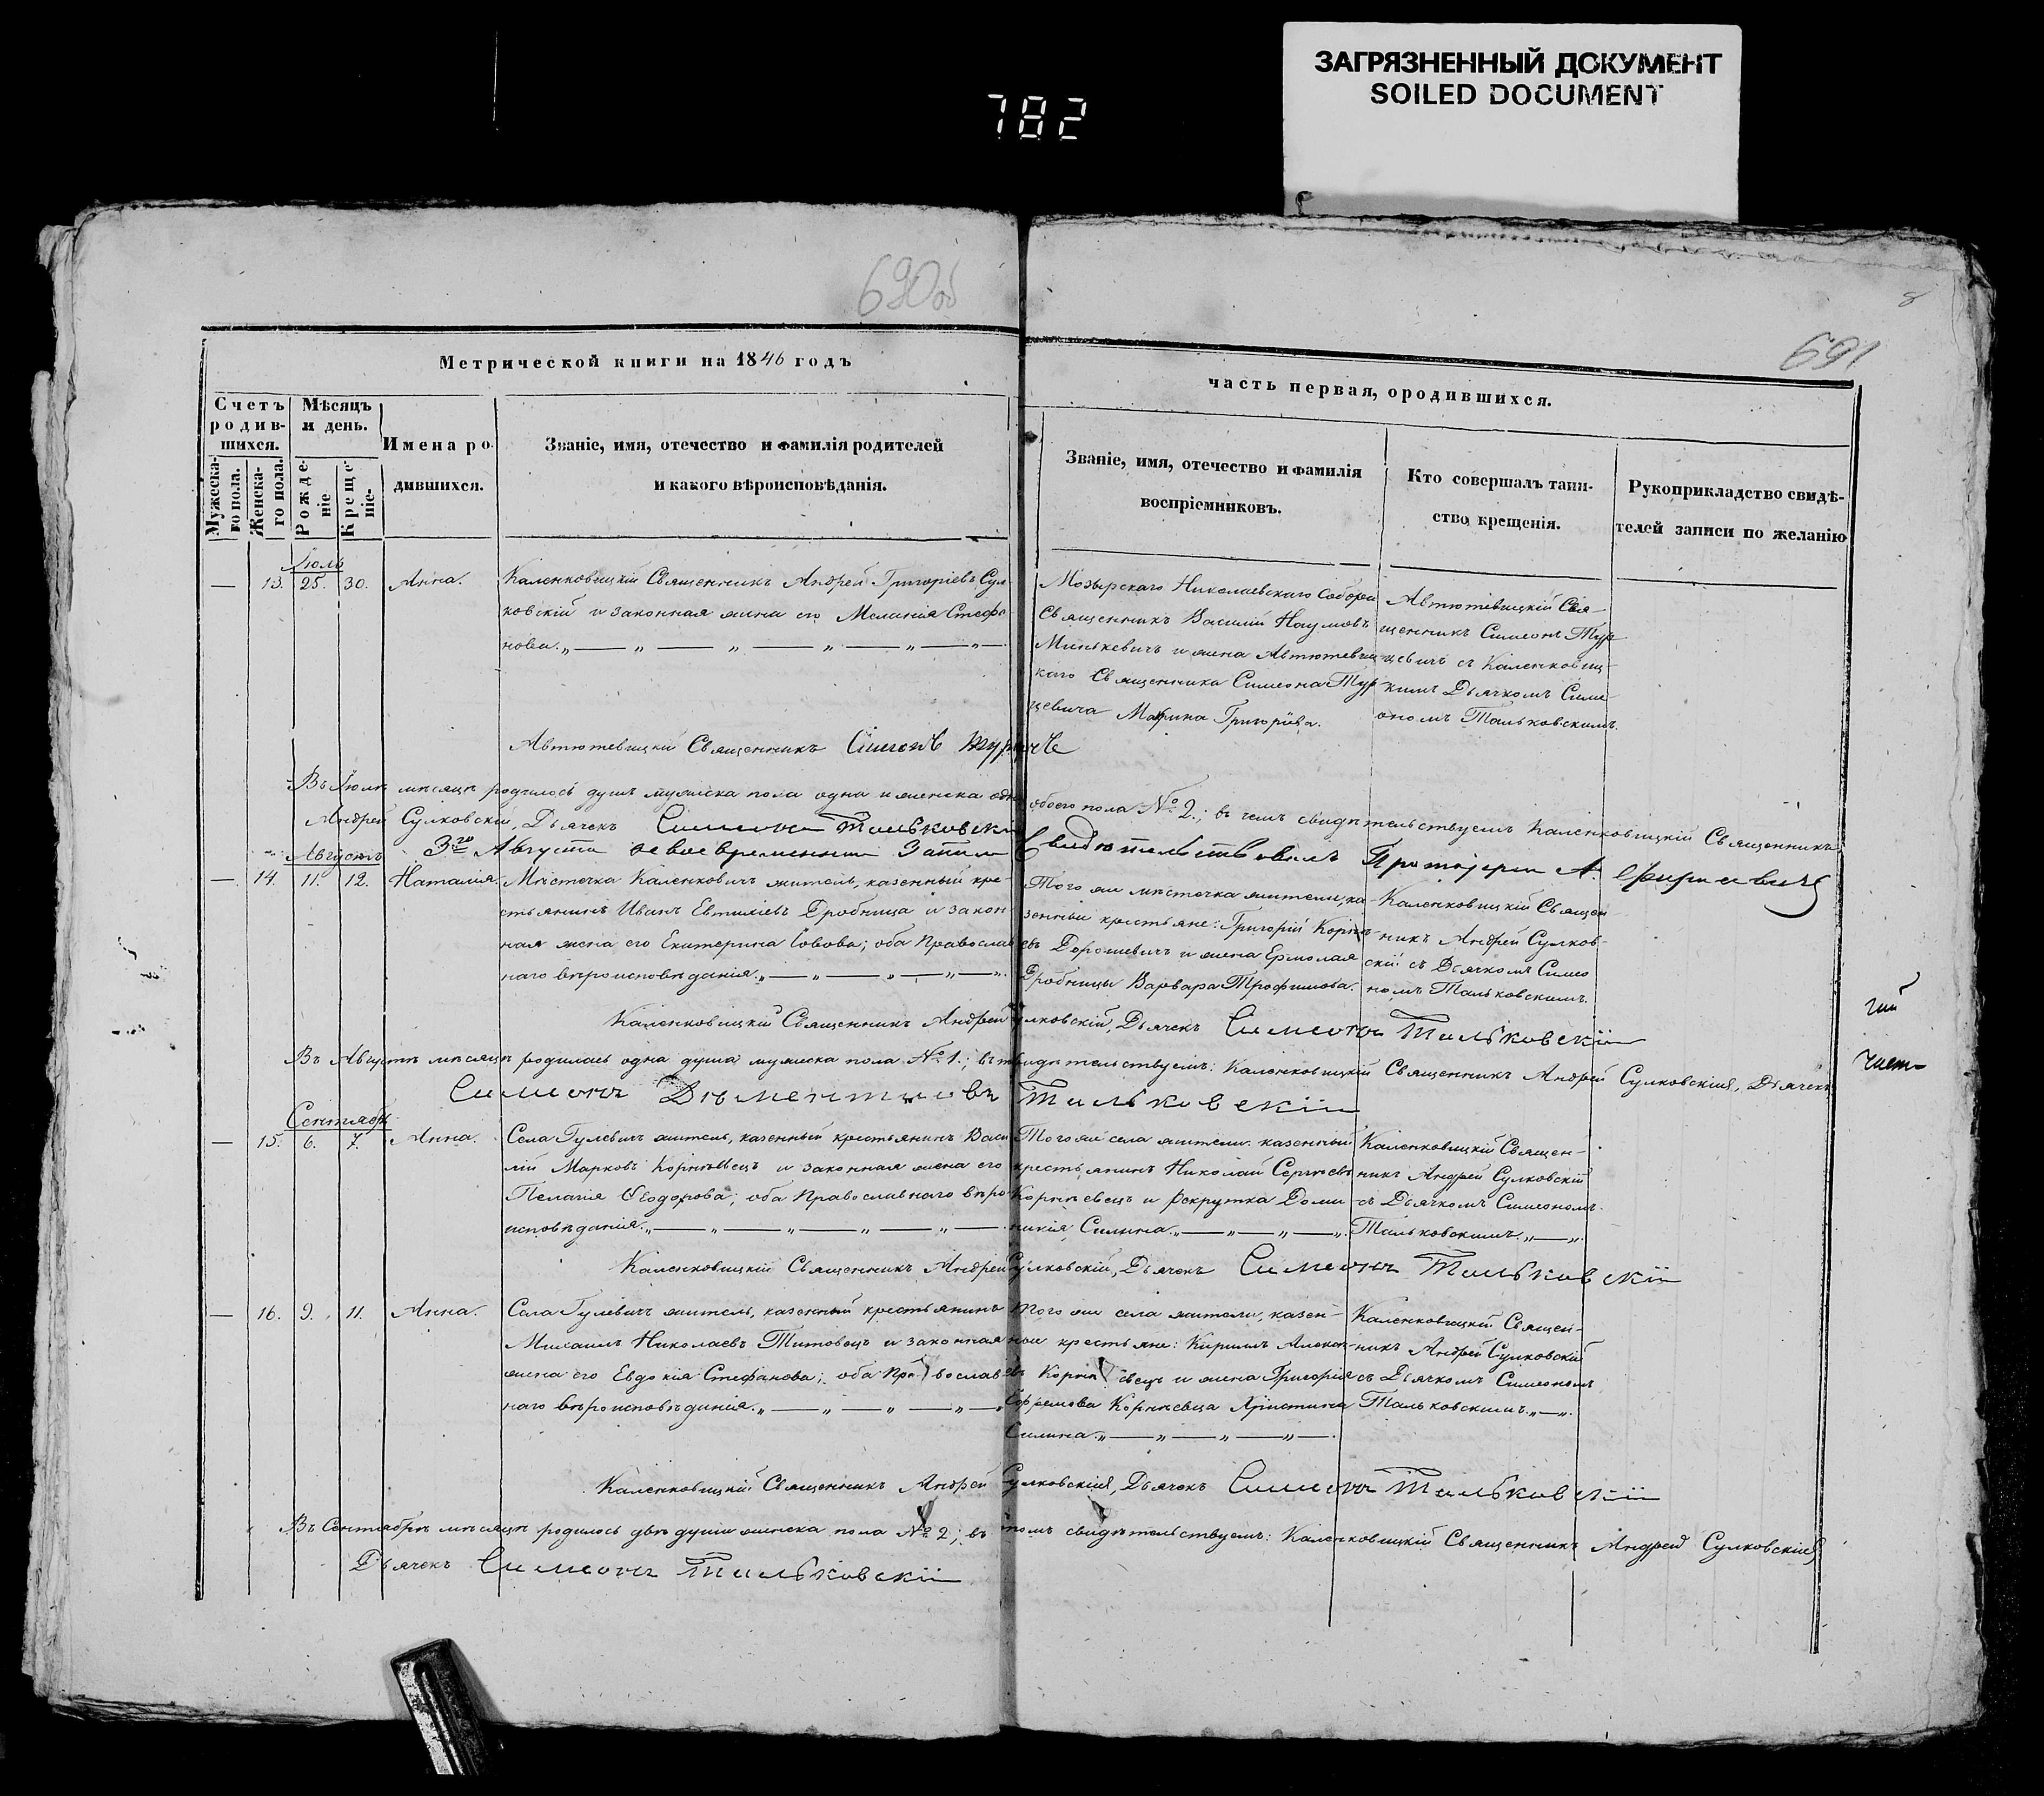 ЗАГРЯЗНЕННЫЙ ДОКУМЕНТ
SOILED DOCUMENT
782
690об
691
Метрической книги на 1846 годъ
часть первая, ородившихся.
Счетъ родив-шихся.
Мужеска-го пола.
Женска-го пола.
Мѣсяцъ и день.
Рожде-ніе
Креще-ніе.
Имена ро-
дившихся.
Званіе, имя, отечество и фамилія родителей
и какого вѣроисповѣданія.
Званіе, имя, отечество и фамилія
воспріемниковъ.
Кто совершалъ таин-
ство крещенія.
Рукоприкладство свидѣ-
телей записи по желанію
Іюль
— 13. 25. 30. Анна.
Каленковицкій Священникъ Андрей Григоріевъ Сул-
ковскій и законная жена его Меланія Стефа-
нова.
Мозырскаго Николаевскаго Собора
Священникъ Василій Наумовъ
Минькевичъ и жена Автютевиц-
каго Священника Симеона Тур-
цевича Марина Григоріева.
Автютевицкій Свя-
щенникъ Симеонъ Тур-
цевичъ съ Каленковиц-
кимъ Дьячкомъ Симе-
ономъ Тальковскимъ.
Автютевицкій Священникъ Симеонъ
Въ Іюлѣ мѣсяцѣ родилось душъ мужеска пола одна и женска одна обоего пола № 2.; въ чемъ свидѣтельствуемъ Каленковицкій Священникъ
Андрей Сулковскій, Дьячекъ Симеонъ Тальковскій
3го Августа Свидѣтельствовалъ Протоіерей А.
Августъ
— 14. 11. 12. Наталія.
Мѣстечка Каленковичъ житель, казенный кре-
стьянинъ Иванъ Евтихіевъ Дробница и закон-
ная жена его Екатерина Іовова; оба Православ-
наго вѣроисповѣданія.
Того же мѣстечка жители, ка-
зенные крестьяне: Григорій Корнѣ-
евъ Дорошевичъ и жена Ермолая
Дробницы Варвара Трофимова.
Каленковицкій Священ-
никъ Андрей Сулков-
скій съ Дьячкомъ Симео-
номъ Тальковскимъ.
Каленковицкій Священникъ Андрей Сулковскій, Дьячекъ Симеонъ Тальковскій
Въ Августѣ мѣсяцѣ родилась одна душа мужеска пола № 1.; свидѣтельствуемъ: Каленковицкій Священникъ Андрей Сулковскій, Дьячекъ
Симеонъ Дѣментіовъ Тальковскій
Сентябрь
— 15. 6. 7. Анна.
Села Гулевичъ житель, казенный крестьянинъ Васи-
лій Марковъ Корнѣевецъ и законная жена его
Пелагія Ѳеодорова; оба Православнаго вѣро-
исповѣданія.
Того же села жители: казенный
крестьянинъ Николай Сергѣевъ
Корнѣевецъ и рекрутка Доми-
никія Силина.
Каленковицкій Священ-
никъ Андрей Сулковскій
съ Дьячкомъ Симеономъ
Тальковскимъ.
Каленковицкій Священникъ Андрей Сулковскій, Дьячекъ Симеонъ Тальковскій
— 16. 9. 11. Анна.
Села Гулевичъ житель, казенный крестьянинъ
Михаилъ Николаевъ Титовецъ и законная
жена его Евдокія Стефанова; оба Православ-
наго вѣроисповѣданія.
Того же села жители, казен-
ные крестьяне: Кириллъ Алексѣ-
евъ Корнѣевецъ и жена Григорія
Ефремова Корнѣевца Христина
Силина.
Каленковицкій Священ-
никъ Андрей Сулковскій
съ Дьячкомъ Симеономъ
Тальковскимъ.
Каленковицкій Священникъ Андрей Сулковскій, Дьячекъ Симеонъ Тальковскій
Въ Сентябрѣ мѣсяцѣ родилось двѣ души женска пола № 2; въ томъ свидѣтельствуемъ: Каленковицкій Священникъ Андрей Сулковскій
Дьячекъ Симеонъ Тальковскій